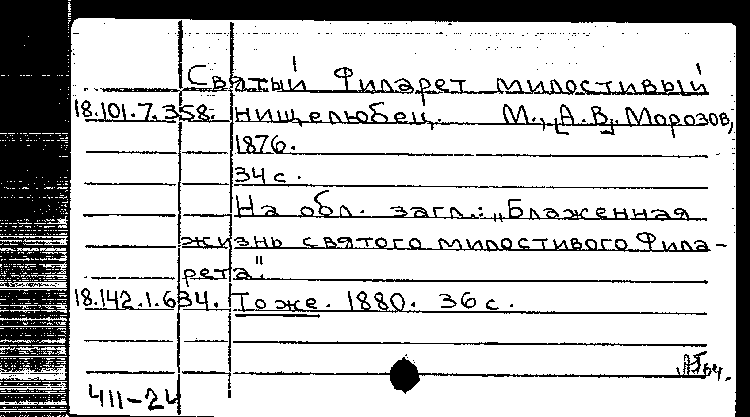 Святый Филарет милостивый
18.101.7.358. нищелюбец. М., [А.В.] Морозов,
1876.
34 с.
На обл. загл.: „Блаженная
жизнь святого милостивого Фила-
рета".
18.142.1.634. То же. 1880. 36 с.
411-24